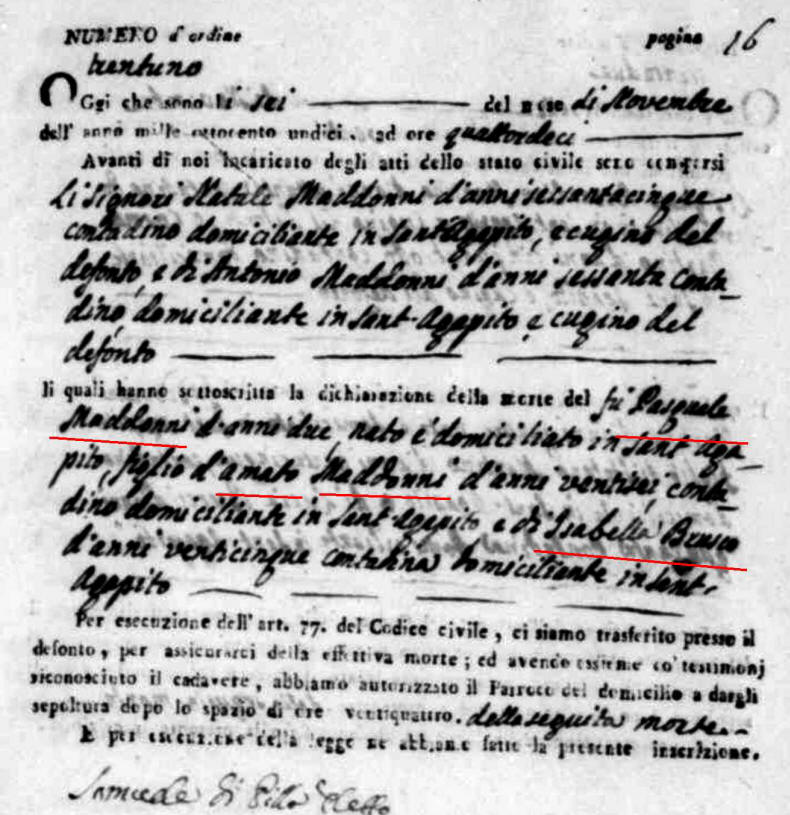 NUMERO d'ordine pagina 16
trentuno
Oggi che sono li sei del mese di Novembre
dell' anno mille ottocento undici, ad ore quattordeci
Avanti di noi Incaricato degli atti dello stato civile sono comparsi
Li Signori Natale Maddonni d'anni sessantacinque
contadino domiciliante in Sant'Agapito, e cugino del
defonto, e di Antonio Maddonni d'anni sessanta conta_
dino, domiciliante in Sant-Agapito e cugino del
defonto
li quali hanno sottoscritta la dichiarazione della morte del fù Pasquale
Maddonni d'anni due, nato e domiciliato in Sant Aga_
pito, figlio d'amato Maddonni d'anni ventisei, conta_
dino domiciliante in Sant-Agapito e di Isabella Brusco
d'anni venticinque contadina domiciliante in Sant-
Agapito
Per esecuzione dell' art. 77. del Codice civile, ci siamo trasferito presso il
defonto, per assicurarci della effettiva morte; ed avendo assieme co' testimonj
riconosciuto il cadavere, abbiamo autorizzato il Parroco del domicilio a dargli
sepoltura dopo lo spazio di ore ventiquattro. della seguita morte.
E per esecuzione della legge ne abbiamo fatta la presente inscrizione.
di Pilla